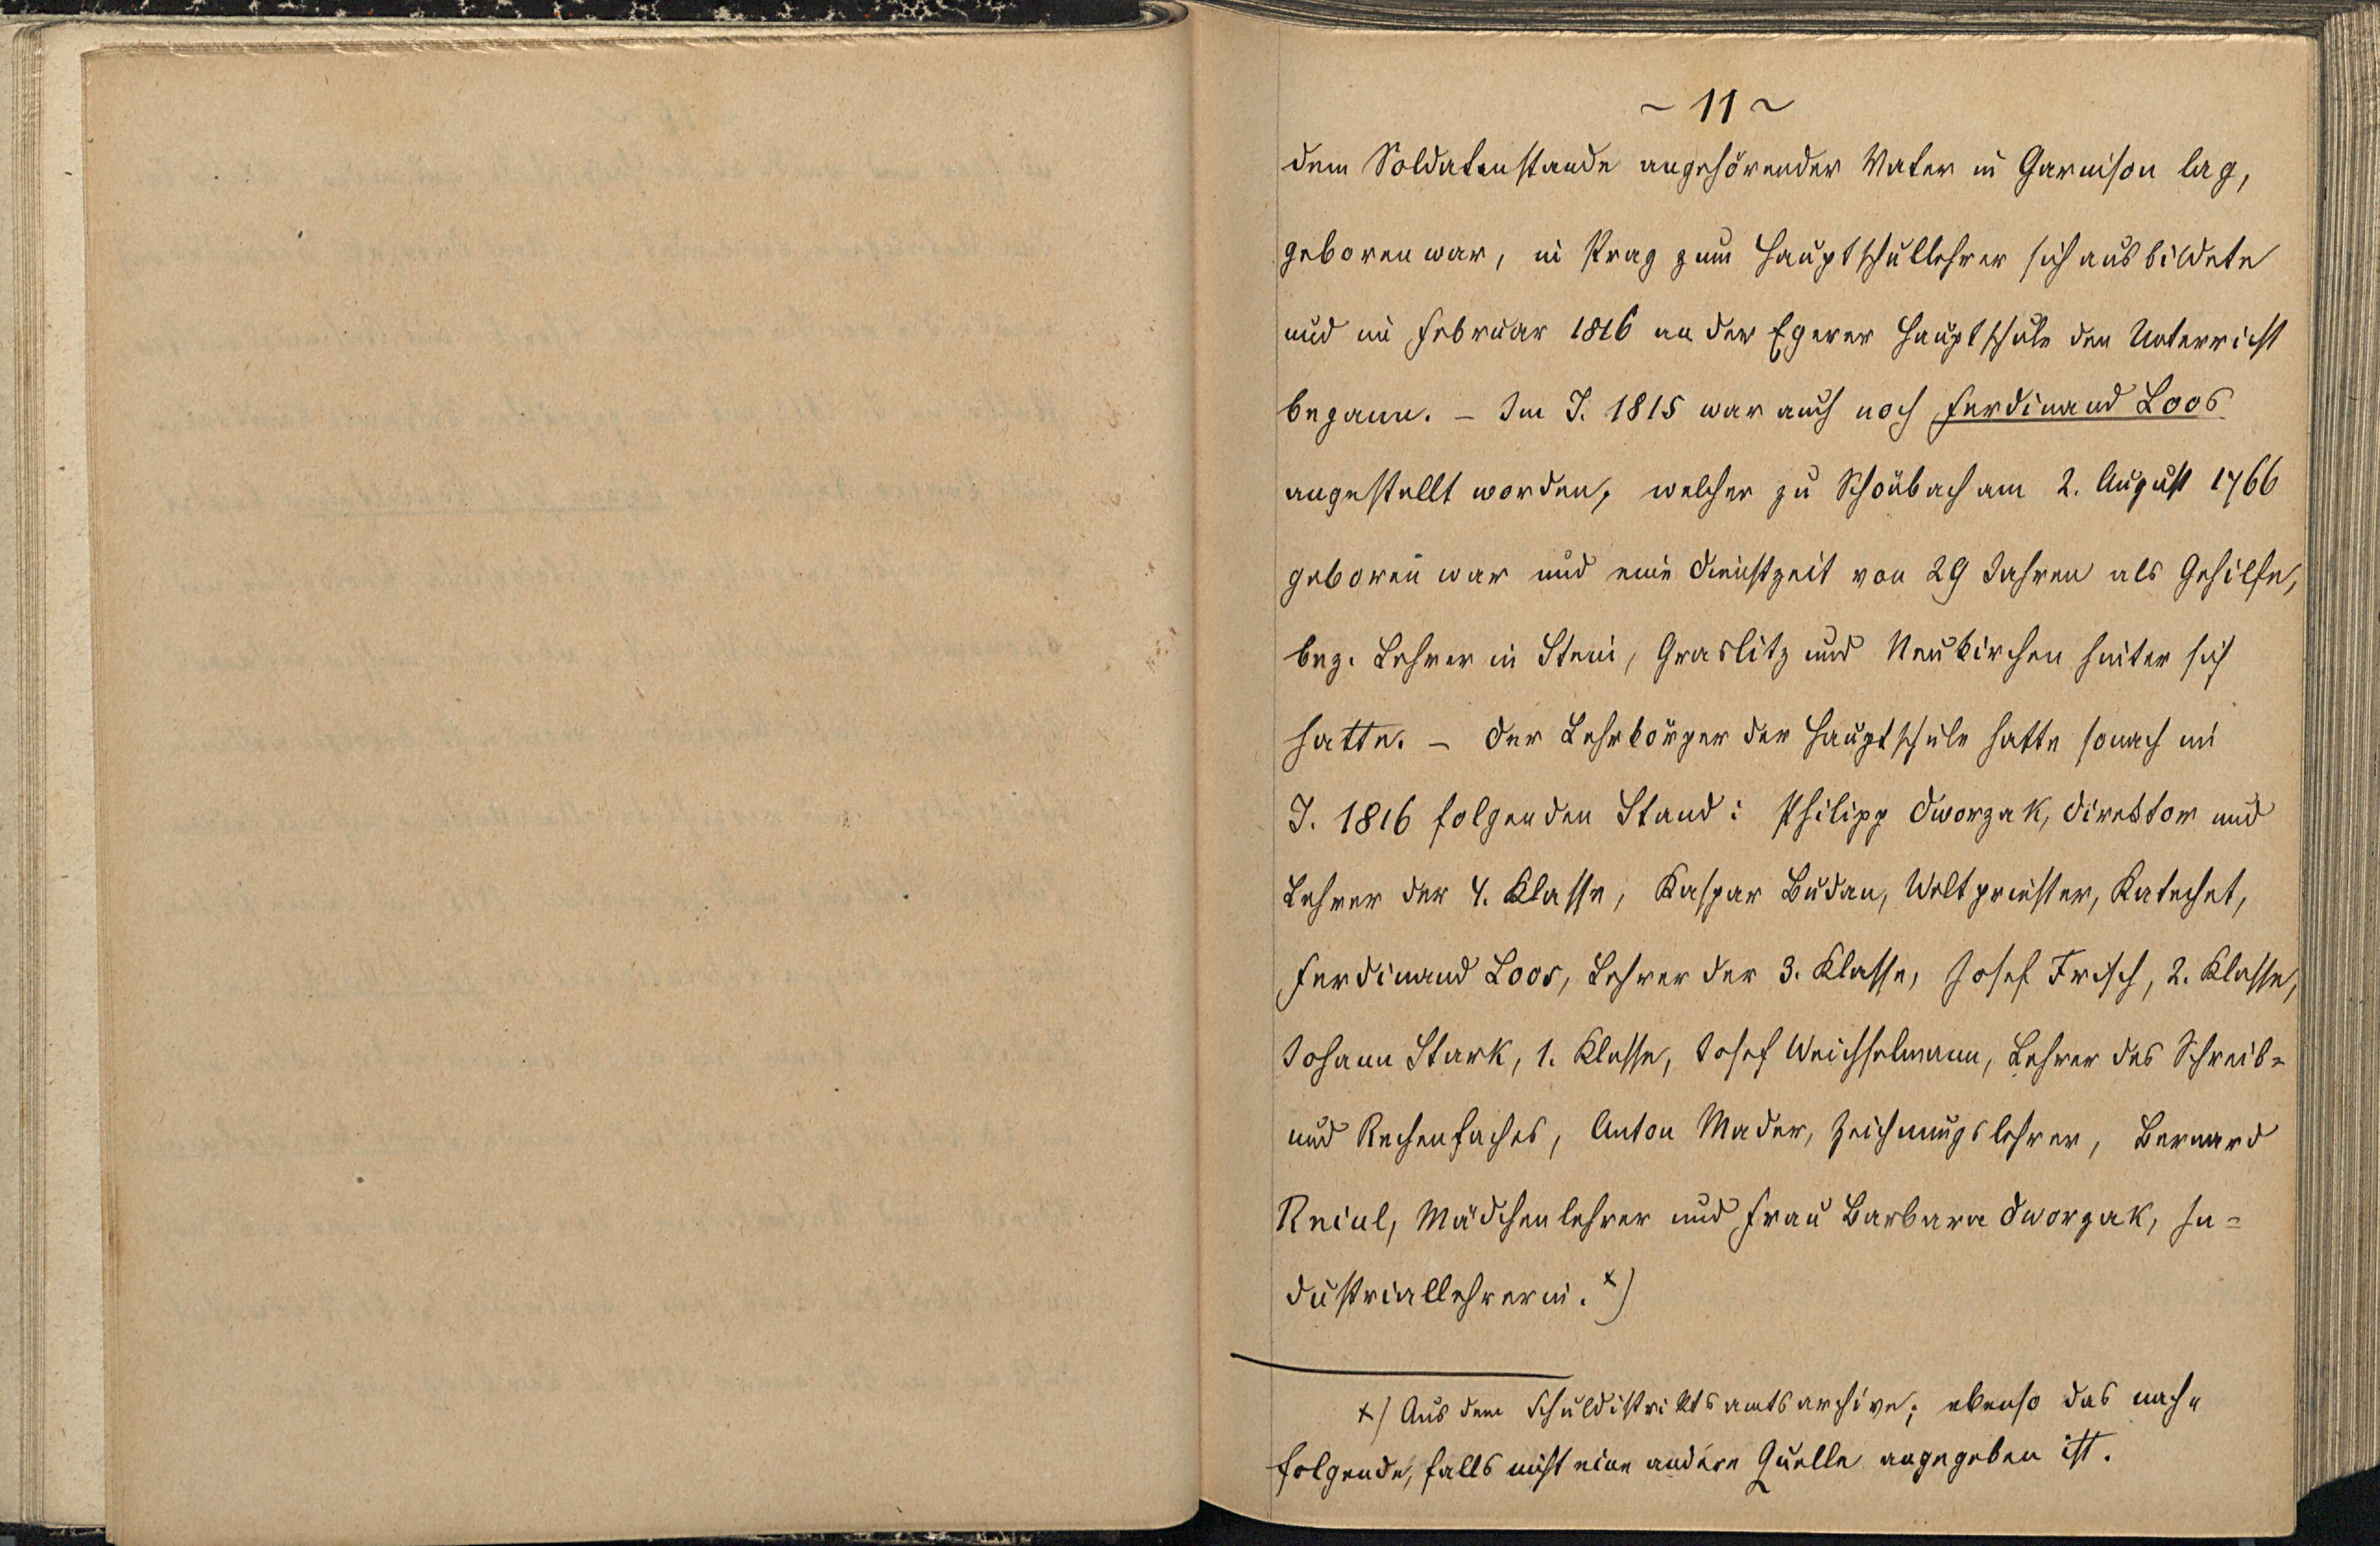 ~ 11 ~
dem Soldatenstande angehörender Vater in Garnison lag,
geboren war, in Prag zum Hauptschullehrer sich ausbildete
und im Februar 1816 an der Egerer Hauptschule den Unterricht
begann. – Im J. 1815 war auch noch Ferdinand Loos
angestellt worden, welcher zu Schönbach am 2. August 1766
geboren war und eine Dienstzeit von 29 Jahren als Gehilfe,
bez. Lehrer in Stein, Graslitz und Neukirchen hinter sich
hatte. – Der Lehrkörper der Hauptschule hatte sonach im
J. 1816 folgenden Stand: Philipp Dworzak, Direktor und
Lehrer der 4. Klasse, Kaspar Budan, Weltpriester, Katechet,
Ferdinand Loos, Lehrer der 3. Klasse, Josef Frisch, 2. Klasse,
Johann Stark, 1. Klasse, Josef Weichselmann, Lehrer des Schreib=
und Rechenfaches, Anton Mader, Zeichnungslehrer, Bernard
Reinl, Mädchenlehrer und Frau Barbara Dworzak, In=
dustriallehrerin. x)
x) Aus dem Schuldistriktsamtsarchive; ebenso das nach=
folgende, falls nicht eine andere Quelle angegeben ist.